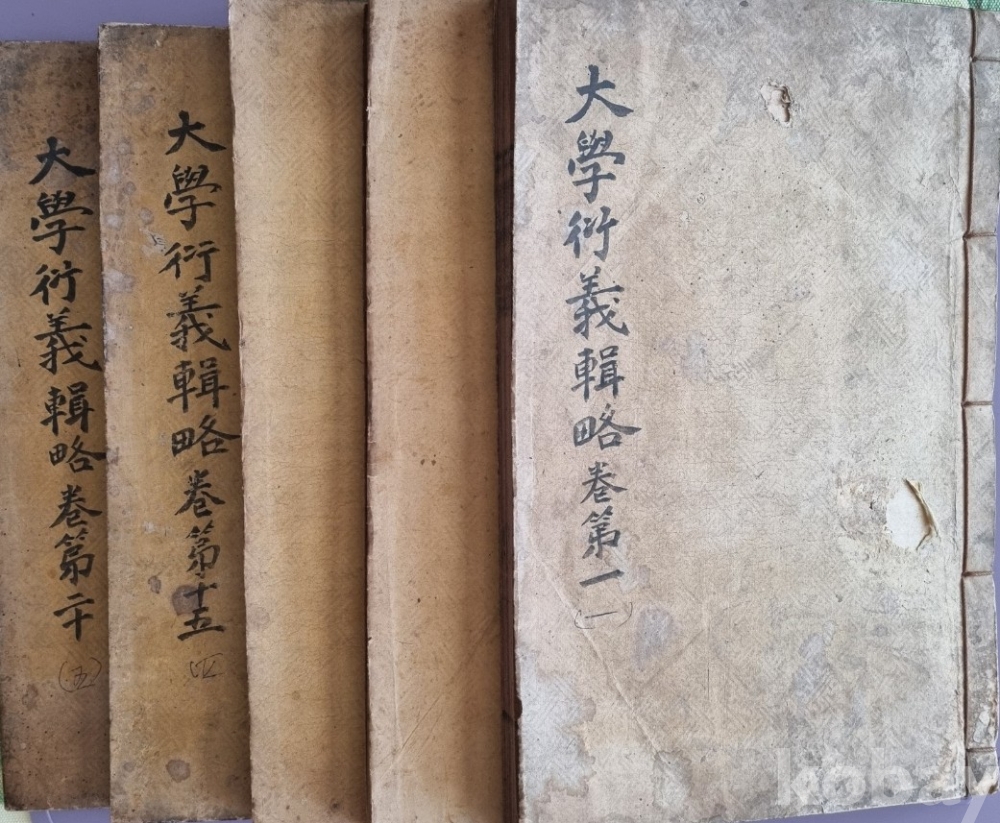 大學衍義輯略卷第一
(一)
大學衍義輯略卷第十五
四
大學衍義輯略卷第二十
(五)
kobay